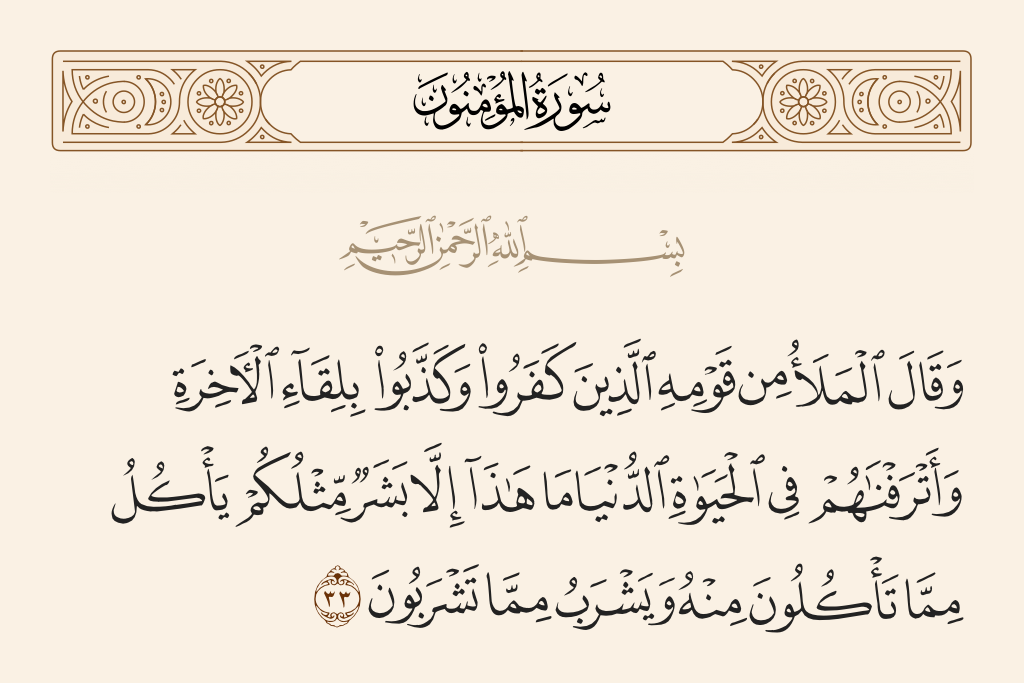 سُورَةُ الْمُؤْمِنُونَ
بِسْمِ ٱللَّهِ ٱلرَّحْمَٰنِ ٱلرَّحِيمِ
وَقَالَ ٱلْمَلَأُ مِن قَوْمِهِ ٱلَّذِينَ كَفَرُوا۟ وَكَذَّبُوا۟ بِلِقَآءِ ٱلْـَٔاخِرَةِ
وَأَتْرَفْنَٰهُمْ فِى ٱلْحَيَوٰةِ ٱلدُّنْيَا مَا هَٰذَآ إِلَّا بَشَرٌ مِّثْلُكُمْ يَأْكُلُ
مِمَّا تَأْكُلُونَ مِنْهُ وَيَشْرَبُ مِمَّا تَشْرَبُونَ ٣٣